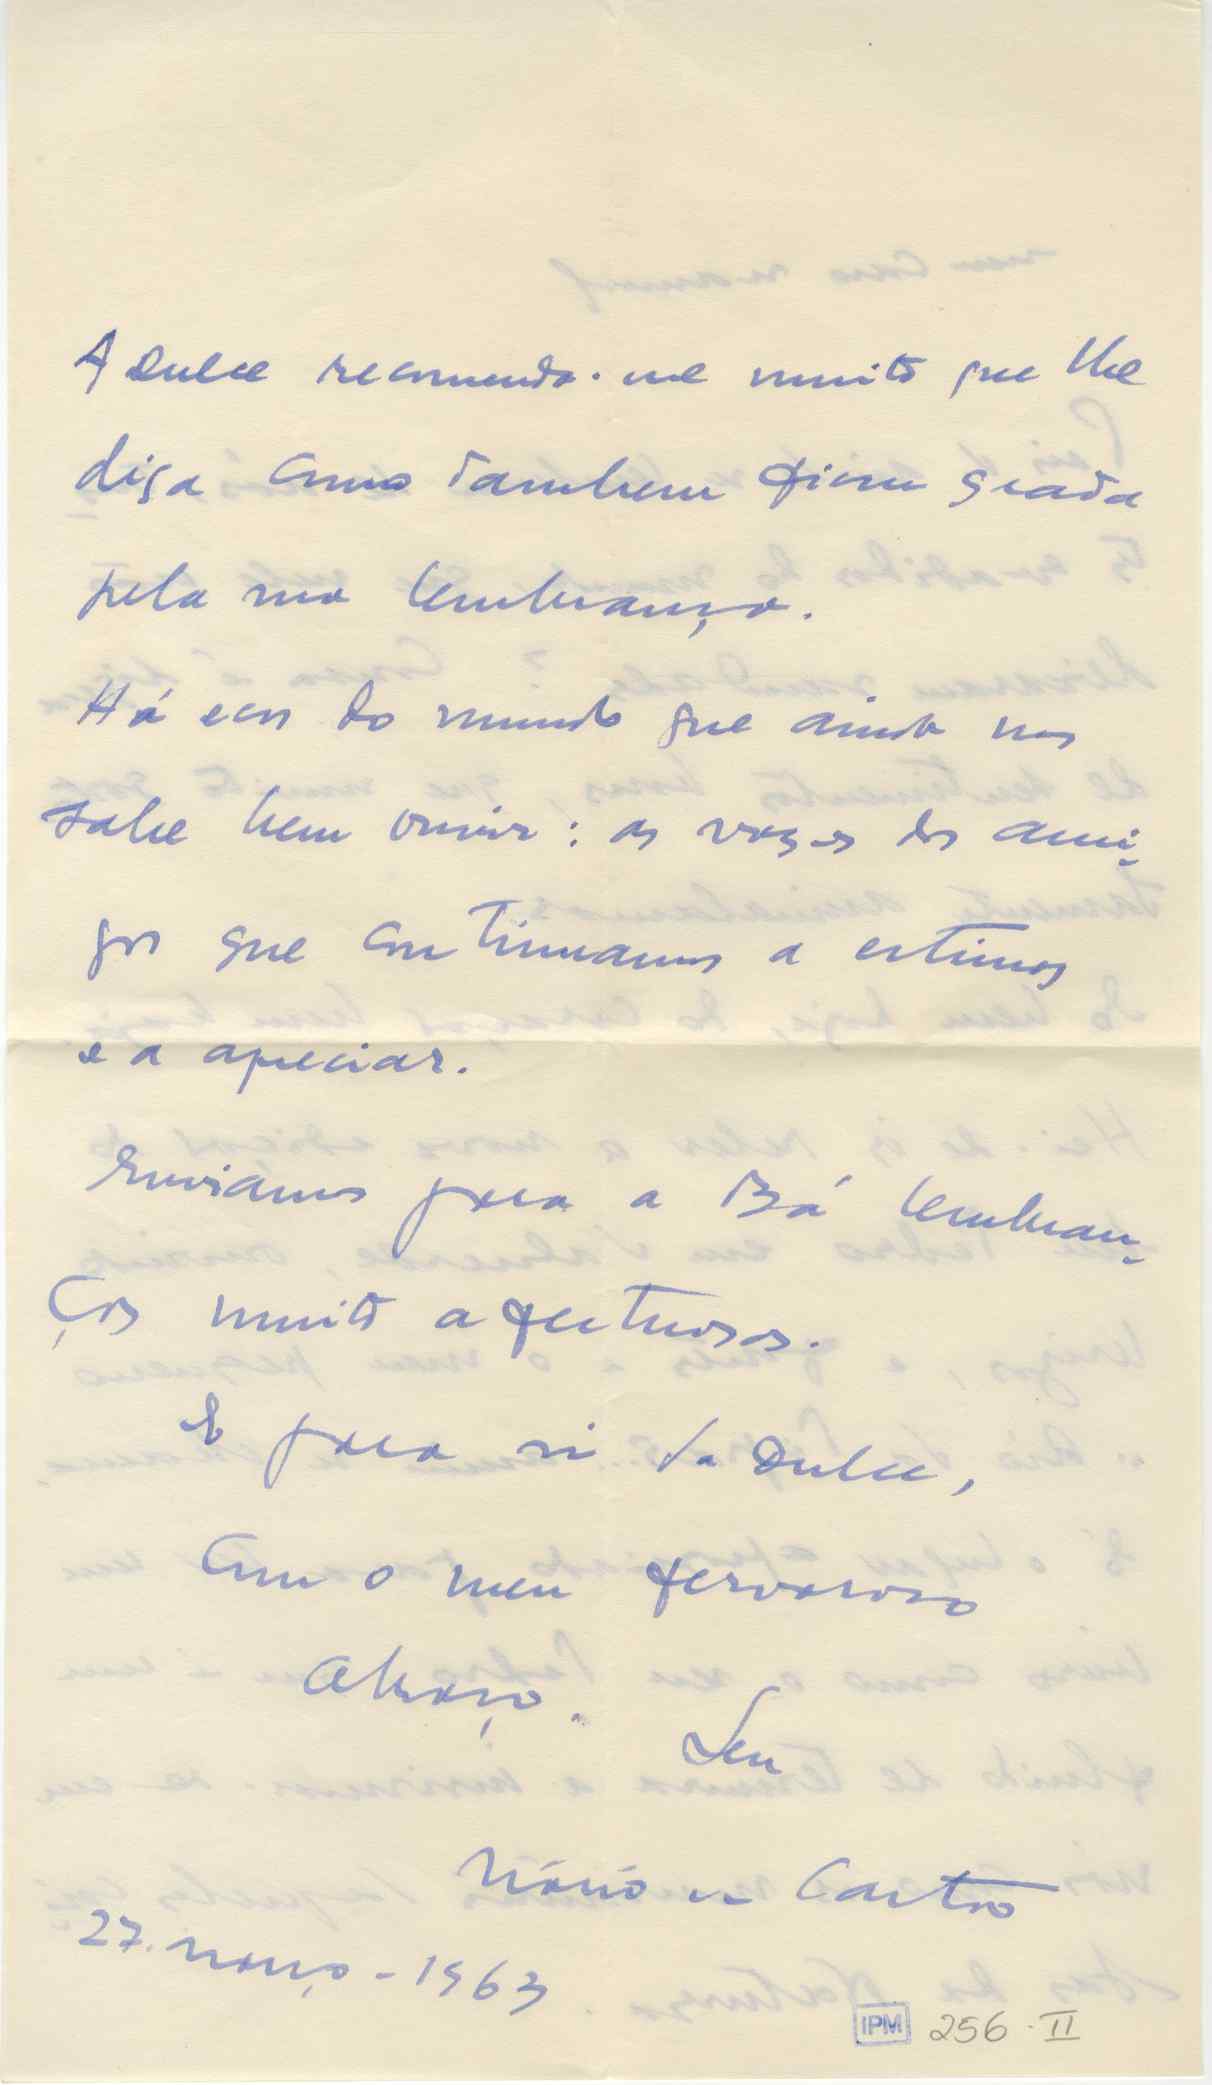 A Dulce recomenda-me muito que lhe
diga como tambem ficou grata
pela sua lembrança.
Há ecos do mundo que ainda nos
sabe bem ouvir: as vozes dos ami-
gos que continuamos a estimar
e a apreciar.
Enviamos para a Bá lembran-
ças muito afectuosas.
E para si da Dulce,
com o meu fervoroso
Abraço.
Seu
Mário de Castro
27. março - 1963
IPM 256-II